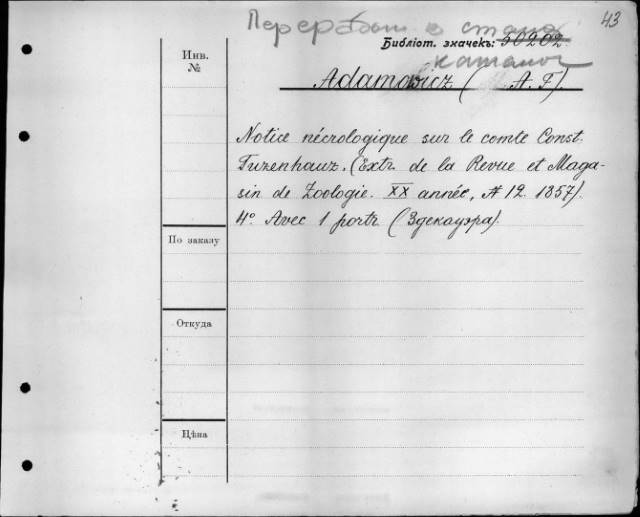 43
Переработ в станд
Библіот. значекъ: 50202
каталог
Инв.
№
Adamowicz ( A. F.)
Notice nécrologique sur le comte Const.
Tuzenhauz. (Extr. de la Revue et Maga-
sin de Zoologie. XX année, № 12. 1857).
4° Avec 1 portr (Здекауэра).
По заказу
Откуда
Цѣна